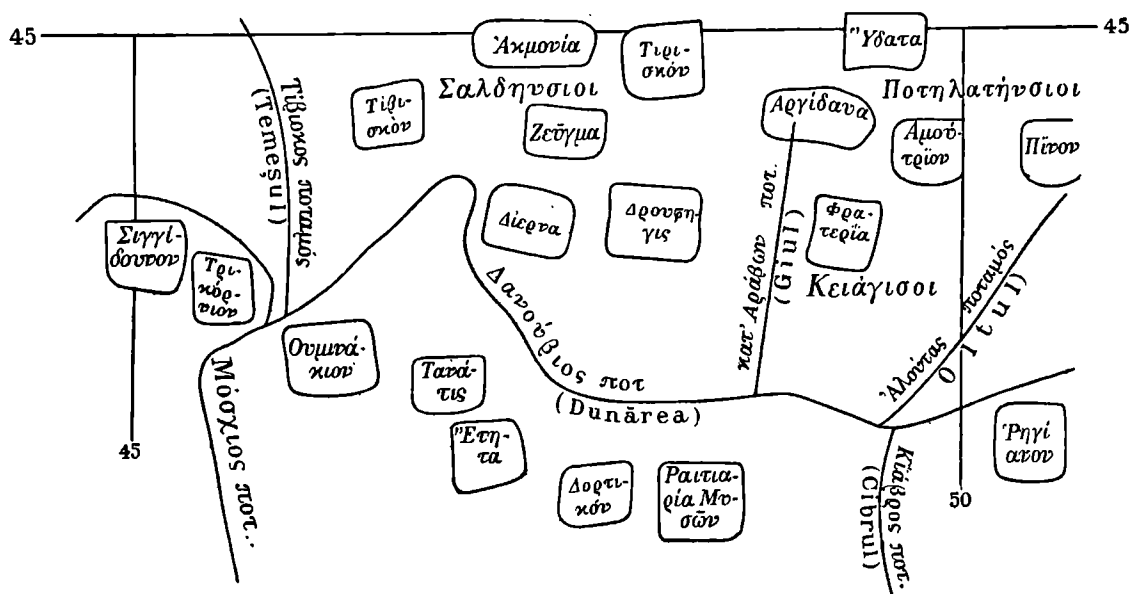 45
45
Ἀκμονία
Τιρι-
σκόν
Ὕδατα
Τίβισκος ποταμός
(Temeșul)
Τίβι-
σκὸν
Σαλδηνσιοι
Ζεῦγμα
Ἀργίδανα
Ποτηλατήνσιοι
Αμού-
τρϊον
Πίνον
Σιγγί-
δουνον
Τρι-
κόρ-
νιον
Δίερνα
Δρουφη-
γις
κατ' Αράβων ποτ.
(Giul)
Φρα-
τερΐα
Κειάγισοι
Δανούβιος ποτ
(Dunărea)
Ἀλούτας ποταμός
Oltul)
Ουμινά-
κιον
Τανά-
τις
Ἔτη-
τα
Μόσχιος ποτ..
45
Δορτι-
κόν
Ραιτια-
ρία Μυ-
σῶν
Κίαβρος ποτ.
(Cibrul)
Ῥηγί
ανον
50